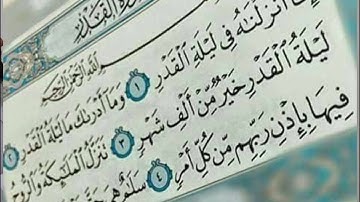 سُورَةُ الْقَدْرِ
بِسْمِ اللَّهِ الرَّحْمَٰنِ الرَّحِيمِ
أَنزَلْنَٰهُ فِى لَيْلَةِ ٱلْقَدْرِ ١ وَمَآ أَدْرَىٰكَ مَا لَيْلَةُ ٱلْقَدْرِ ٢
لَيْلَةُ ٱلْقَدْرِ خَيْرٌ مِّنْ أَلْفِ شَهْرٍ ٣ تَنَزَّلُ ٱلْمَلَٰٓئِكَةُ وَٱلرُّوحُ
فِيهَا بِإِذْنِ رَبِّهِم مِّن كُلِّ أَمْرٍ ٤ سَلَٰمٌ هِىَ حَتَّىٰ